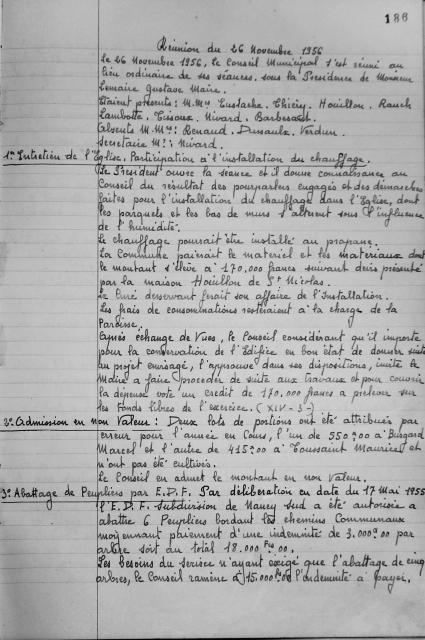 186
Réunion du 26 Novembre 1956
Le 26 Novembre 1956, le Conseil Municipal s'est réuni au
lieu ordinaire de ses séances, sous la Présidence de Monsieur
Lemaire Gustave Maire.
Etaient présents : M.M. Eustache. Thiéry. Houillon. Rauch
Lambotte. Tissoux. Nivard. Barbesant.
Absents M.M. Renaud. Dussaulx. Verdun.
Secrétaire M. Nivard.
1° Entretien de l'Eglise. Participation à l'installation du chauffage.
Le Président ouvre la séance et il donne connaissance au
Conseil du résultat des pourparlers engagés et des démarches
faites pour l'installation du chauffage dans l'Eglise, dont
les parquets et les bas de murs s'altèrent sous l'influence
de l'humidité.
Le chauffage pourrait être installé au propane.
La Commune paierait le matériel et les matériaux dont
le montant s'élève à 170,000 francs suivant devis présenté
par la maison Houillon de St Nicolas.
Le Curé desservant ferait son affaire de l'Installation.
Les frais de consommations resteraient à la charge de la
Paroisse.
Après échange de Vues, le Conseil considérant qu'il importe
pour la conservation de l'Edifice en bon état de donner suite
au projet envisagé, l'approuve dans ses dispositions, invite le
Maire à faire procéder de suite aux travaux et pour couvrir
la dépense vote un crédit de 170.000 francs à prélever sur
les Fonds libres de l'exercice. (XIV-3-)
2° Admission en non Valeur : Deux lots de portions ont été attribués par
erreur pour l'année en Cours, l'un de 550.00 à Bussard
Marcel et l'autre de 415.00 à Toussaint Maurice et
n'ont pas été cultivés.
Le Conseil en admet le montant en non Valeur.
3° Abattage de Peupliers par E.D.F. Par délibération en date du 17 Mai 1955
l'E.D.F. Subdivision de Nancy Sud a été autorisée à
abattre 6 Peupliers bordant les chemins Communaux
moyennant paiement d'une indemnité de 3.000.00 par
arbre soit au total 18.000 Frs 00.
Les besoins du service n'ayant exigé que l'abattage de cinq
arbres, le Conseil ramène à 15.000.00 l'indemnité à payer.